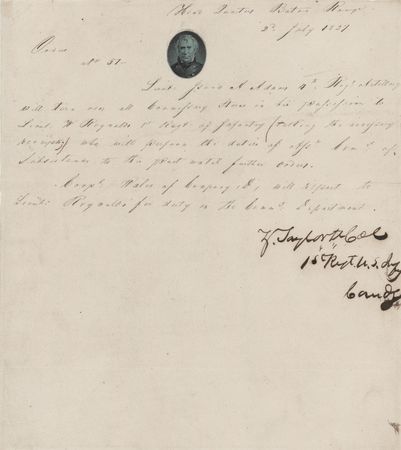 Head Quarters Baton Rouge
2d July 1827
Order
No 51
Lieut. A Adams 4th Regt Artillery
will turn over all Commissary Stores in his possession to
Lieut. W Reynolds 1st Regt of Infantry (taking the necessary
receipts) who will perform the duties of Comy of
Subsistence to the post until further orders.
Corpl Wales of Company D, will report to
Lieut Reynolds for duty in the Commy Department.
Z. Taylor Lt Col
1st Regt U.S. Infy
Comdg